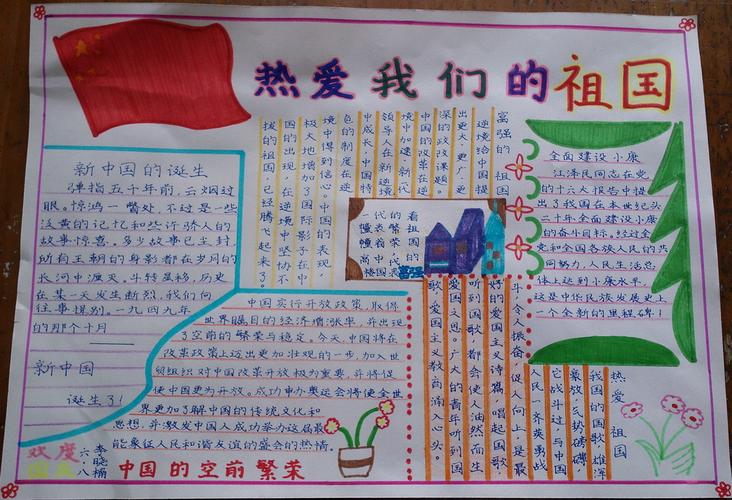 热爱我们的祖国
新中国的诞生
弹指五千年前,云烟过
眼。惊鸿一瞥处,不过是一些
泛黄的记忆和些许骄人的
故事惊喜。多少故事已尘封,
所有王朝的身影都在岁月的
长河中湮灭。斗转星移,历史
在某一天发生断裂,我们向
往事揖别。一九四九年
的那个十月
——
新中国
诞生了!
富强的祖国
逆境给中国提
出更大更广更
深的政改课题。
中国的改革在逆
境中加速,新代
领导人在新逆境
中成长,中国特
色的制度在逆
境中得到信心。
中国的表现
极大地增加了国际影子在
国的出现,在逆境中坚协不
拔的祖国,已经腾飞起来了。
全面建设小康
江泽民同志在党
的十六大报告中提
出了我国在本世纪头
二十年全面建设小康
的奋斗目标。经过全
党和全国各族人民的共
同努力,人民生活总
体上达到小康水平,
这是中华民族发展史上
一个全新的里程碑!
中国实行开放政策,取得
世界瞩目的经济增涨率,并出现
了空前的繁荣与稳定。今天,中国将在
改革政策上迈出更加壮观的一步,加入世
贸组织对中国改革开放极为重要,并将促
使中国更为开放。成功申办奥运会将使全世
界更加了解中国的传统文化和
思想,并激发中国人成功举办这届最
能象征人民和谐友谊的盛会的热情。
热爱祖国
我国的国歌雄浑
豪放,气势磅礴,
它战斗过与中国
人民一齐英勇战
斗,令人振奋,促人向上,是最
好的爱国主义诗篇。唱起国歌,
听到国歌,都会使人油然而生
爱国之思。广大的青年听到国
歌,爱国主义教育涌入心头。
欢度
国庆
六八
李晓楠
中国的空前繁荣